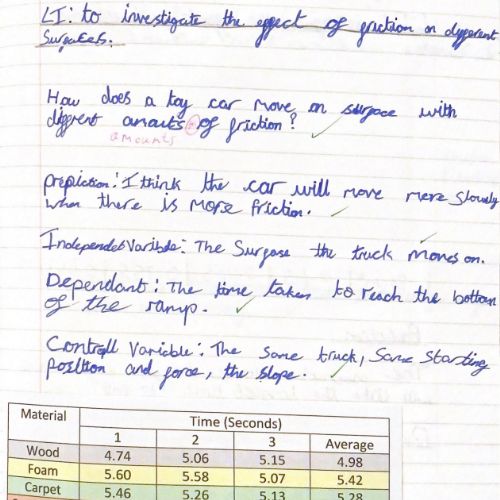 LI: to investigate the effect of friction on different
Surfaces.
How does a toy car move on surface with
diggerent amouts of friction?
amounts
prediction: I think the car will move more slowly
when there is more friction.
Independet Varible: The Surgase the truck moves on.
Dependant: The time taken to reach the bottom
of the ramp.
Controll Variable: The same truck, same starting
position and force, the slope.
Material Time (Seconds)
1 2 3 Average
Wood 4.74 5.06 5.15 4.98
Foam 5.60 5.58 5.07 5.42
Carpet 5.46 5.26 5.13 5.28